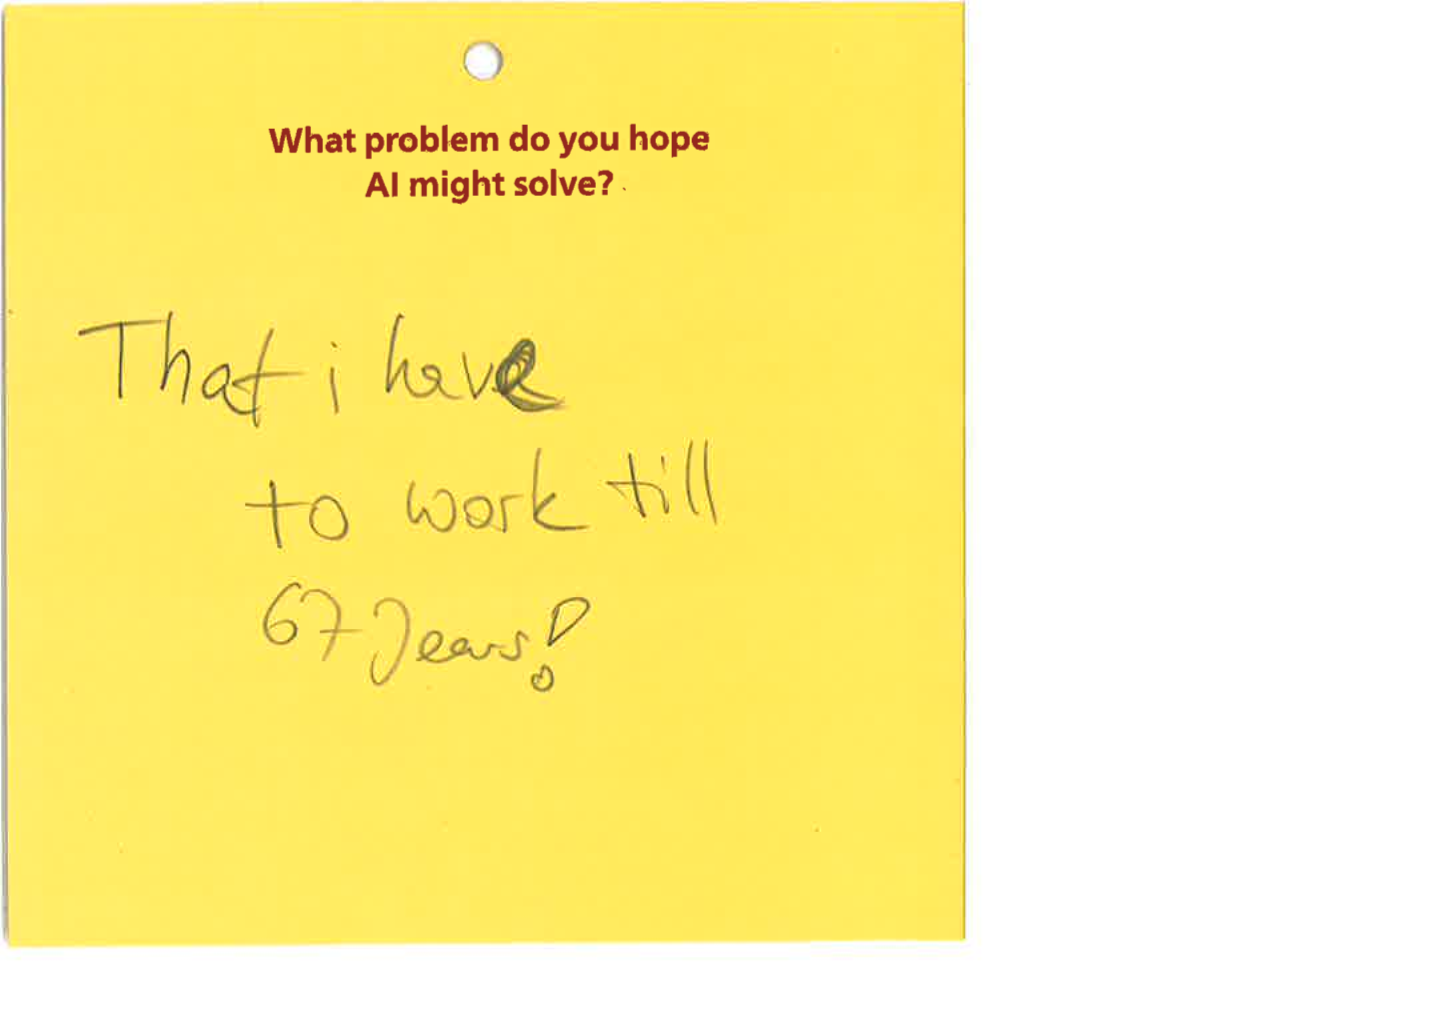 What problem do you hope
AI might solve?
That i have
to work till
67 Jears!